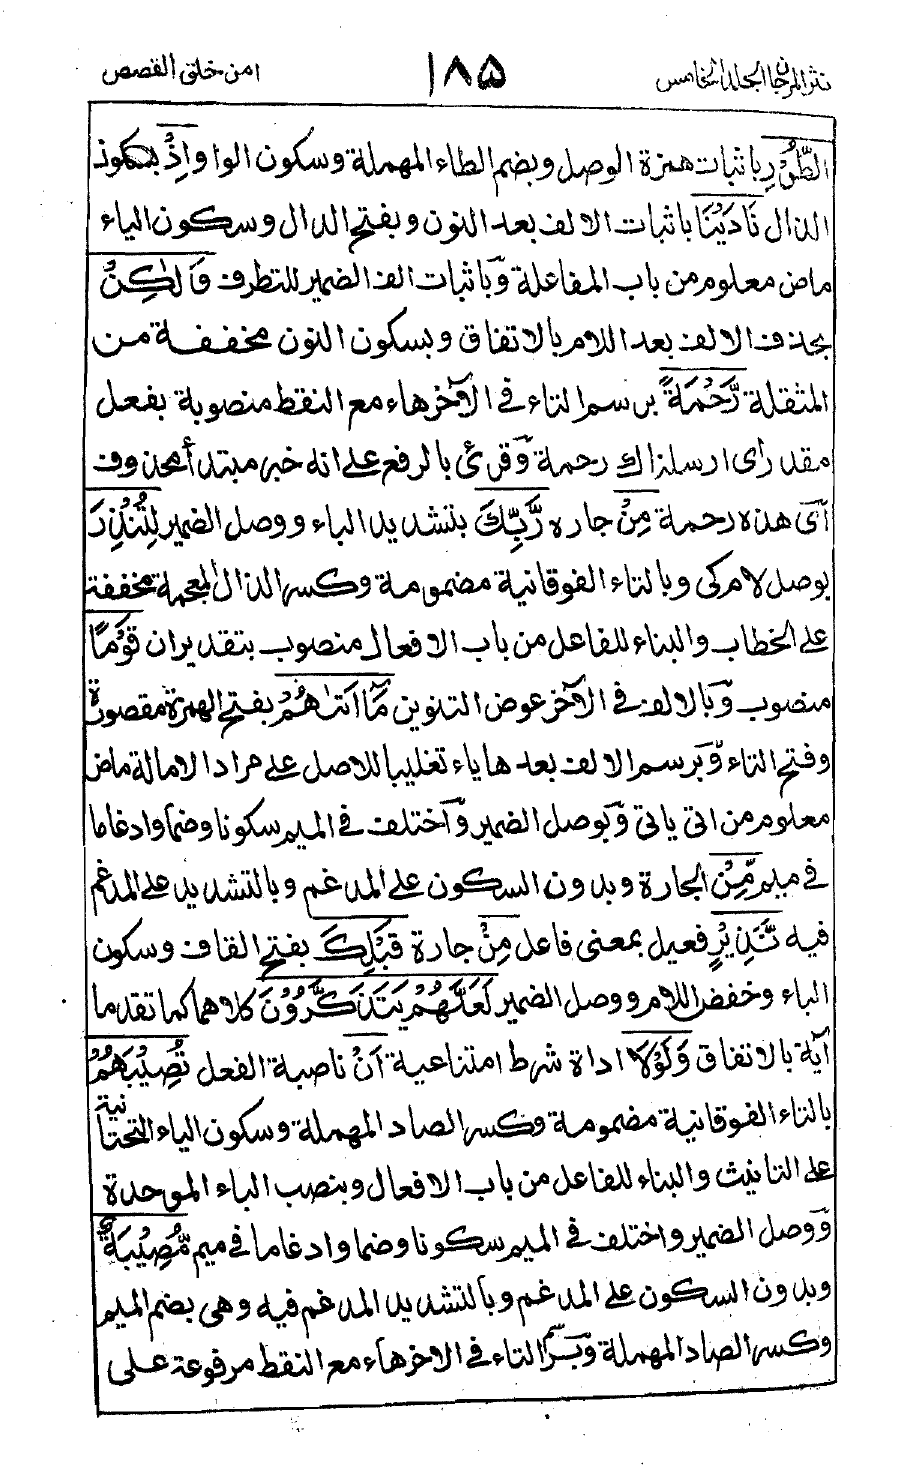 نثر المرجان المجلد الخامس ١٨٥ امن خلق القصص
الطُّوْرِ باثبات همزة الوصل وبضم الطاء المهملة وسكون الواو اِذْ بسكون
الذال نَادَيْنَا باثبات الالف بعد النون وبفتح الدال وسكون الياء
ماض معلوم من باب المفاعلة وَباثبات الف الضمير للتطرف وَلٰكِنْ
بحذف الالف بعد اللام بالاتفاق وبسكون النون مخففة من
المثقلة رَّحْمَةً برسم التاء في الآخر هاء مع النقط منصوبة بفعل
مقدر أى ارسلناك رحمة وَقرئ بالرفع على انه خبر مبتدأ محذوف
أى هذه رحمة مِنْ جارة رَّبِّكَ بتشديد الباء ووصل الضمير لِتُنْذِرَ
بوصل لام كى وبالتاء الفوقانية مضمومة وكسر الذال المعجمة مخففة
على الخطاب والبناء للفاعل من باب الافعال منصوب بتقدير ان قَوْمًا
منصوب وَبالالف في الآخر عوض التنوين مَّا اَتٰىهُمْ بفتح الهمزة مقصورة
وفتح التاء وَبرسم الالف بعدها ياء تغليبا للاصل على مراد الامالة ماض
معلوم من اتى ياتى وَبوصل الضمير وَاختلف في الميم سكونا وضما وادغاما
في ميم مِّنْ الجارة وبدون السكون على المدغم وبالتشديد على المدغم
فيه نَّذِيْرٍ فعيل بمعنى فاعل مِنْ جارة قَبْلِكَ بفتح القاف وسكون
الباء وخفض اللام ووصل الضمير لَعَلَّهُمْ يَتَذَكَّرُوْنَ كلاهما كما تقدما
آية بالاتفاق وَلَوْلَا اداة شرط امتناعية اَنْ ناصبة الفعل تُصِيْبَهُمْ
بالتاء الفوقانية مضمومة وكسر الصاد المهملة وسكون الياء التحتانية
على التانيث والبناء للفاعل من باب الافعال وبنصب الباء الموحدة
وَوصل الضمير واختلف في الميم سكونا وضما وادغاما في ميم مُّصِيْبَةٌ
وبدون السكون على المدغم وبالتشديد المدغم فيه وهى بضم الميم
وكسر الصاد المهملة وَبرسم التاء في الاخر هاء مع النقط مرفوعة على